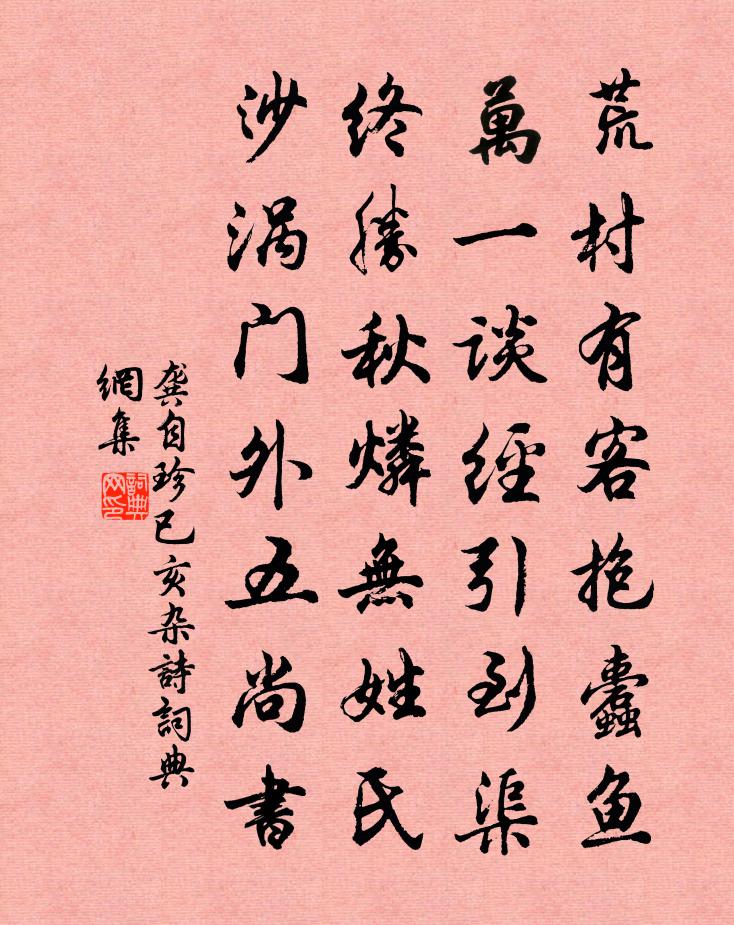 荒村有客抱蠹鱼
萬一谈經引到渠
终勝秋燐無姓氏
沙涡门外五尚書
龚自珍已亥杂詩詞典
網集
詞典
网印